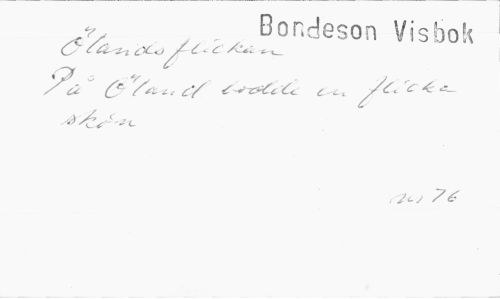 Bondeson Visbok
Ölandsflickan
På Öland bodde en flicka
skön
nr 76